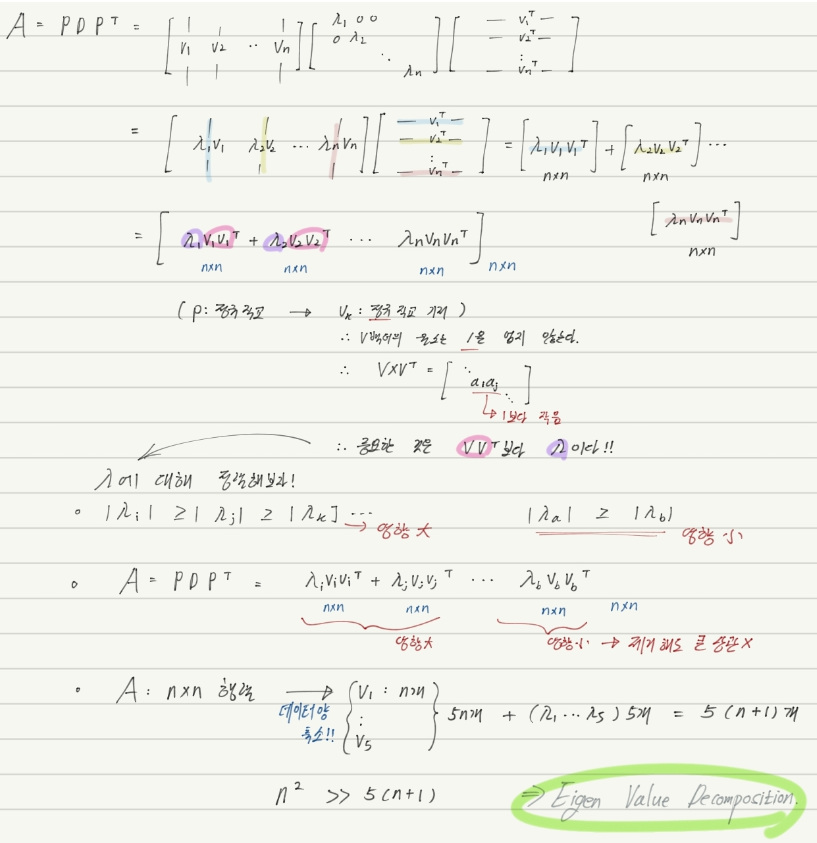 A = PDPᵀ = [v₁ v₂ ‥ vₙ] [λ₁ 0 0 0 λ₂ ⋱ λₙ] [— v₁ᵀ — — v₂ᵀ — ⋮ — vₙᵀ —]
= [λ₁v₁ λ₂v₂ ⋯ λₙvₙ] [— v₁ᵀ — — v₂ᵀ — ⋮ — vₙᵀ —] = [λ₁v₁v₁ᵀ] + [λ₂v₂v₂ᵀ] ⋯
n×n n×n
[λₙvₙvₙᵀ]
n×n
= [λ₁v₁v₁ᵀ + λ₂v₂v₂ᵀ ⋯ λₙvₙvₙᵀ]
n×n n×n n×n n×n
(P: 정규직교 → vₖ: 정규 직교 기저)
∴ V벡터의 원소는 1을 넘지 않는다.
∴ V×Vᵀ = [⋱ aᵢaⱼ ⋱]
↳ 1보다 작음
∴ 중요한 것은 VVᵀ보다 λ이다!!
λ에 대해 정렬해보라!
◦ |λᵢ| ≥ |λⱼ| ≥ |λₖ| ⋯ → 영향 大 |λₐ| ≥ |λ_b| 영향 小
◦ A = PDPᵀ = λᵢvᵢvᵢᵀ + λⱼvⱼvⱼᵀ ⋯ λ_b v_b v_bᵀ
n×n n×n n×n n×n
영향大 영향小 → 제거해도 큰 상관 X
◦ A: n×n 행렬 → {v₁: n개 : v₅} 5n개 + (λ₁ ⋯ λ₅) 5개 = 5(n+1)개
데이터양
축소!!
n² >> 5(n+1) ⇒ Eigen Value Decomposition.